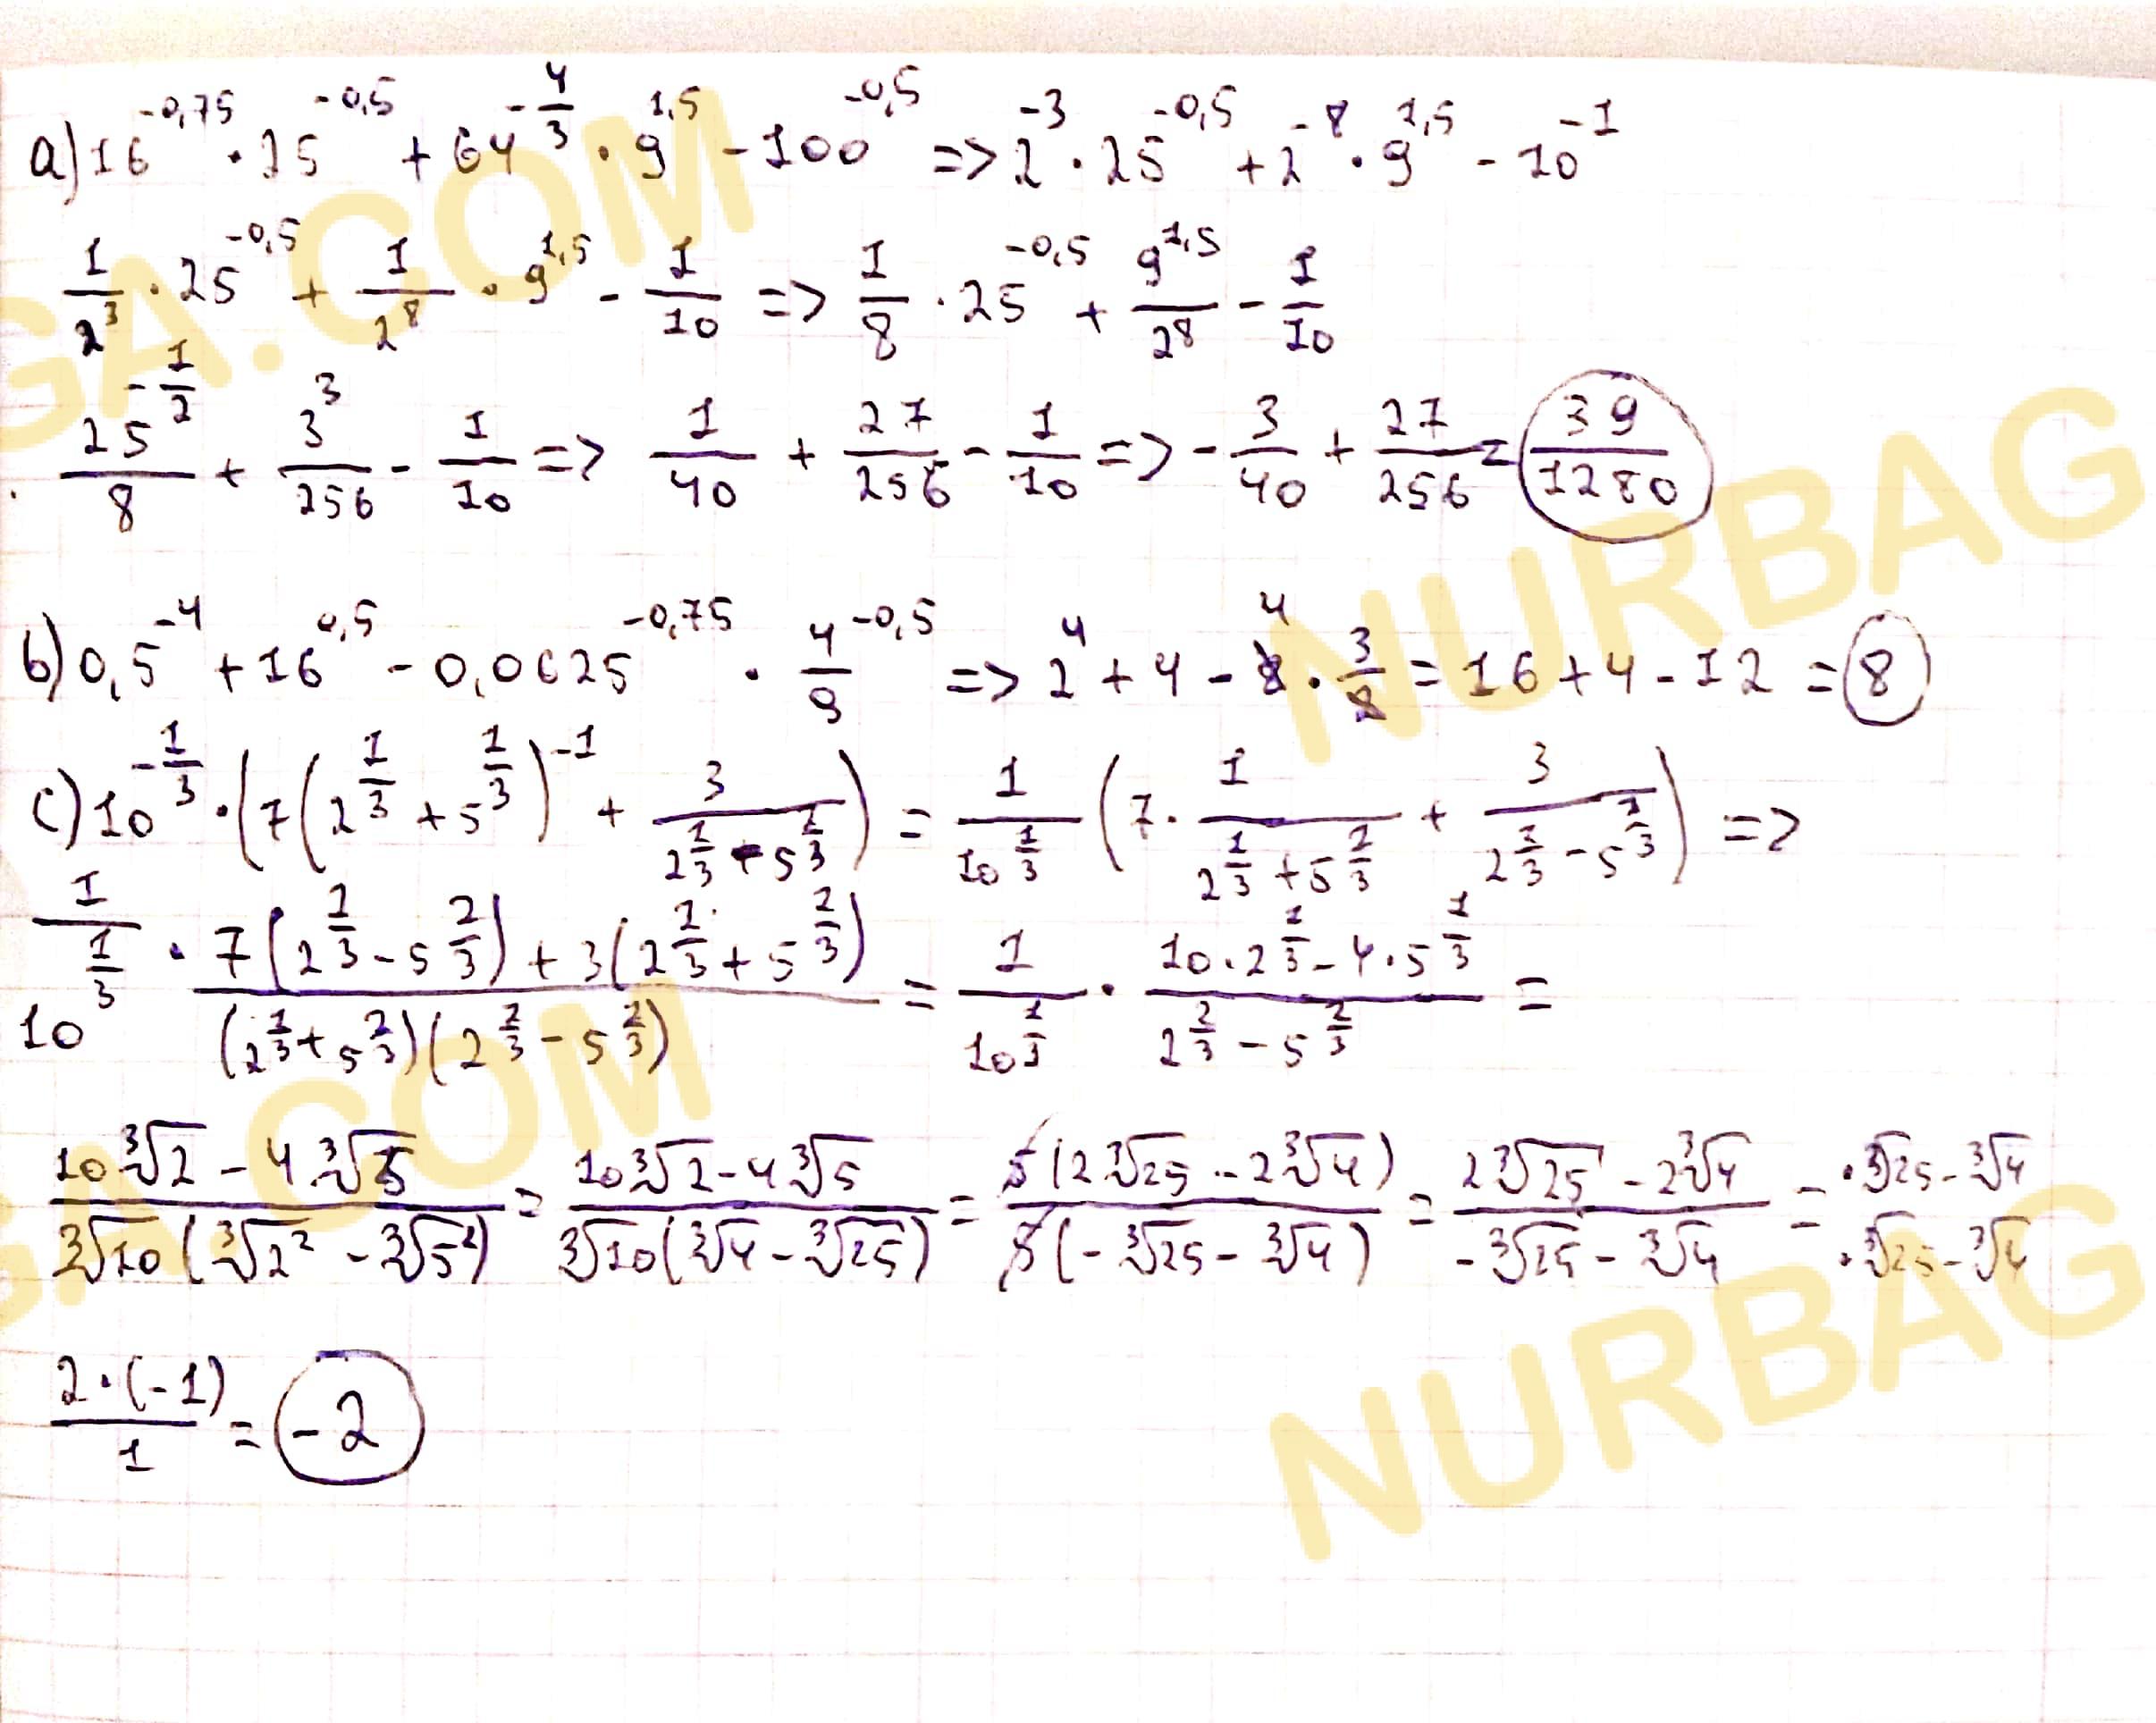 a) 16^-0,75 · 25^-0,5 + 64^-4/3 · 9^1,5 - 100^-0,5 => 2^-3 · 25^-0,5 + 2^-8 · 9^1,5 - 10^-1
1/2^3 · 25^-0,5 + 1/2^8 · 9^1,5 - 1/10 => 1/8 · 25^-0,5 + 9^1,5/2^8 - 1/10
25^-1/2/8 + 3^3/256 - 1/10 => 1/40 + 27/256 - 1/10 => -3/40 + 27/256 = 39/1280
b) 0,5^-4 + 16^0,5 - 0,0625^-0,75 · 4/9^-0,5 => 2^4 + 4 - 8 4 · 3/2 = 16 + 4 - 12 = 8
c) 10^-1/3 · (7(2^1/3 + 5^1/3)^-1 + 3/(2^1/3 - 5^1/3)) = 1/10^1/3 (7 · 1/(2^1/3 + 5^1/3) + 3/(2^1/3 - 5^1/3)) =>
1/10^1/3 · (7(2^1/3 - 5^1/3) + 3(2^1/3 + 5^1/3))/((2^1/3 + 5^1/3)(2^1/3 - 5^1/3)) = 1/10^1/3 · (10 · 2^1/3 - 4 · 5^1/3)/(2^2/3 - 5^2/3) =
(10∛2 - 4∛5)/(∛10(∛2² - ∛5²)) = (10∛2 - 4∛5)/(∛10(∛4 - ∛25)) = 5(2∛25 - 2∛4)/5(-∛25 - ∛4) = (2∛25 - 2∛4)/(-∛25 - ∛4) = ·∛25 - ∛4/·∛25 - ∛4
2·(-1)/1 = -2
GA.COM
NURBAG
GA.COM
NURBAG